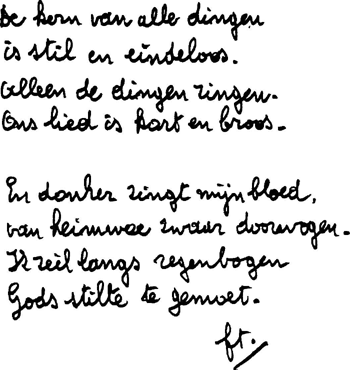 De kern van alle dingen
is stil en eindeloos.
Alleen de dingen zingen.
Ons lied is kort en broos.
En donker zingt mijn bloed,
van heimwee zwaar doorwogen.
Ik zeil langs regenbogen
Gods stilte te gemoet.
ft.